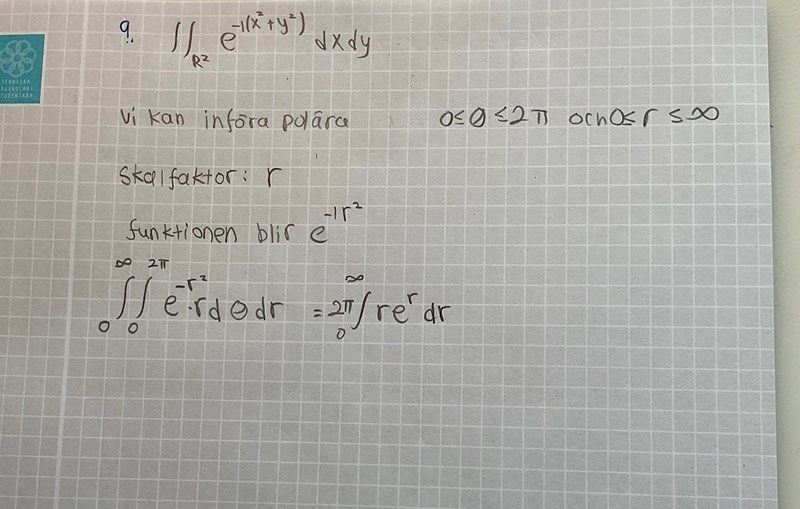 9. ∬_R² e^-1(x²+y²) dxdy
Vi kan införa polära 0≤θ≤2π och 0≤r≤∞
Skalfaktor: r
funktionen blir e^-1r²
∫_0^∞ ∫_0^2π e^-r² · r dθ dr = 2π ∫_0^∞ r e^r dr